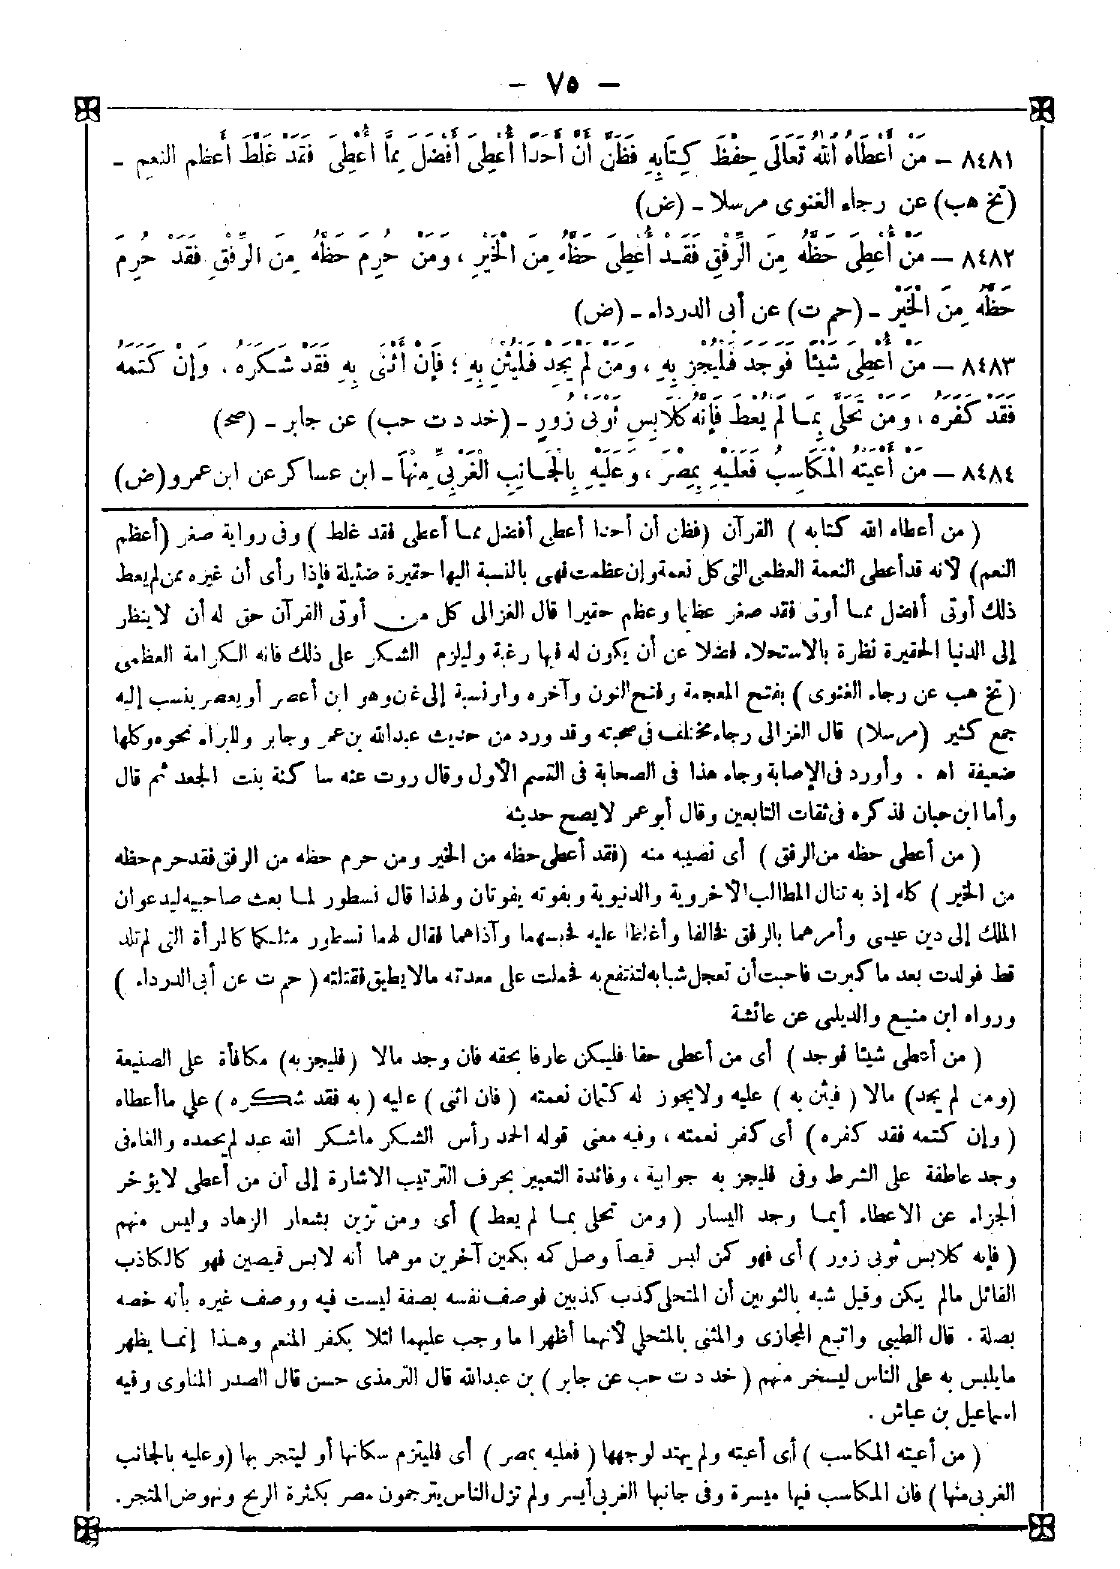 — ٧٥ —
٨٤٨١ — مَنْ أَعْطَاهُ اللهُ تَعَالَى حِفْظَ كِتَابِهِ فَظَنَّ أَنَّ أَحَدًا أُعْطِىَ أَفْضَلَ مِمَّا أُعْطِىَ فَقَدْ غَلَطَ أَعْظَمَ النعم -
(تخ هب) عن رجاء الغنوى مرسلا - (ض)
٨٤٨٢ — مَنْ أُعْطِىَ حَظَّهُ مِنَ الرِّفْقِ فَقَدْ أُعْطِىَ حَظَّهُ مِنَ الْخَيْرِ ، وَمَنْ حُرِمَ حَظَّهُ مِنَ الرِّفْقِ فَقَدْ حُرِمَ
حَظَّهُ مِنَ الْخَيْرِ - (حم ت) عن أبى الدرداء - (ض)
٨٤٨٣ — مَنْ أُعْطِىَ شَيْئًا فَوَجَدَ فَلْيَجْزِ بِهِ ، وَمَنْ لَمْ يَجِدْ فَلْيُثْنِ بِهِ ؛ فَإِنْ أَثْنَى بِهِ فَقَدْ شَكَرَهُ ، وَإِنْ كَتَمَهُ
فَقَدْ كَفَرَهُ ، وَمَنْ تَحَلَّى بِمَا لَمْ يُعْطَ فَإِنَّهُ كَلَابِسِ ثَوْبَىْ زُورٍ - (خد د ت حب) عن جابر - (صح)
٨٤٨٤ — مَنْ أَعْيَتْهُ الْمَكَاسِبُ فَعَلَيْهِ بِمِصْرَ ، وَعَلَيْهِ بِالْجَانِبِ الْغَرْبِىِّ مِنْهَا - ابن عساكر عن ابن عمرو (ض)
( من أعطاه الله كتابه ) القرآن (فظن أن أحدا أعطى أفضل مما أعطى فقد غلط ) وفى رواية صغر (أعظم
النعم) لأنه قد أعطى النعمة العظمى التى كل نعمة وإن عظمت فهى بالنسبة اليها حقيرة ضئيلة فإذا رأى أن غيره ممن لم يعط
ذلك أوتى أفضل مما أوتى فقد صغر عظيما وعظم حقيرا قال الغزالى كل من أوتى القرآن حق له أن لا ينظر
إلى الدنيا الحقيرة نظرة بالاستحلاء فضلا عن أن يكون له فيها رغبة وليلزم الشكر على ذلك فانه الكرامة العظمى
(تخ هب عن رجاء الغنوى ) بفتح المعجمة وفتح النون وآخره واو نسبة إلى غن وهو ابن أعصر أو يعصر ينسب إليه
جمع كثير (مرسلا) قال الغزالى رجاء مختلف فى صحبته وقد ورد من حديث عبدالله بن عمر وجابر والبراء نحوه وكلها
ضعيفة اه . وأورد فى الإصابة وجاء هذا فى الصحابة فى القسم الأول وقال روت عنه سا كنة بنت الجعد ثم قال
وأما ابن حبان فذكره فى ثقات التابعين وقال أبو عمر لا يصح حديثه
( من أعطى حظه من الرفق ) أى نصيبه منه (فقد أعطى حظه من الخير ومن حرم حظه من الرفق فقد حرم حظه
من الخير ) كله إذ به تنال المطالب الأخروية والدنيوية وبفوته يفوتان ولهذا قال نسطور لما بعث صاحبيه ليدعوان
الملك إلى دين عيسى وأمرهما بالرفق فخالفا وأغلظا عليه فحبسهما وآذاهما فقال لهما نسطور مثلكما كالمرأة التى لم تلد
قط فولدت بعد ما كبرت فأحبت أن تعجل شبابه لتنتفع به فحملت على معدته مالا يطيق فقتلته ( حم ت عن أبى الدرداء )
ورواه ابن منيع والديلمى عن عائشة
( من أعطى شيئا فوجد ) أى من أعطى حقا فليكن عارفا بحقه فان وجد مالا (فليجز به) مكافأة على الصنيعة
(ومن لم يجد) مالا ( فيثن به ) عليه ولا يجوز له كتمان نعمته ( فان اثنى ) عليه ( به فقد شكره ) على ما أعطاه
( وإن كتمه فقد كفره ) أى كفر نعمته ، وفيه معنى قوله الحمد رأس الشكر ماشكر الله عبد لم يحمده والفاء فى
وجد عاطفة على الشرط وفى فليجز به جوابية ، وفائدة التعبير بحرف الترتيب الاشارة إلى أن من أعطى لا يؤخر
الجزاء عن الاعطاء أيما وجد اليسار ( ومن تحلى بما لم يعط ) أى ومن تزين بشعار الزهاد وليس منهم
( فإنه كلابس ثوبى زور ) أى فهو كمن لبس قميصا وصل كمه بكمين آخرين موهما أنه لابس قميصين فهو كالكاذب
القائل مالم يكن وقيل شبه بالثوبين أن المتحلى كذب كذبين فوصف نفسه بصفة ليست فيه ووصف غيره بأنه خصه
بصلة . قال الطيبى واتبع المجازى والمثنى بالمتحلى لأنهما أظهرا ما وجب عليهما لئلا يكفر المنعم وهذا إنما يظهر
مايلبس به على الناس ليسخر منهم ( خد د ت حب عن جابر ) بن عبدالله قال الترمذى حسن قال الصدر المناوى وفيه
اسماعيل بن عياش .
( من أعيته المكاسب ) أى أعيته ولم يهتد لوجهها ( فعليه بمصر ) أى فليلتزم سكانها أو ليتجر بها (وعليه بالجانب
الغربى منها ) فان المكاسب فيها ميسرة وفى جانبها الغربى أيسر ولم تزل الناس يترجمون مصر بكثرة الربح ونهوض المتجر.